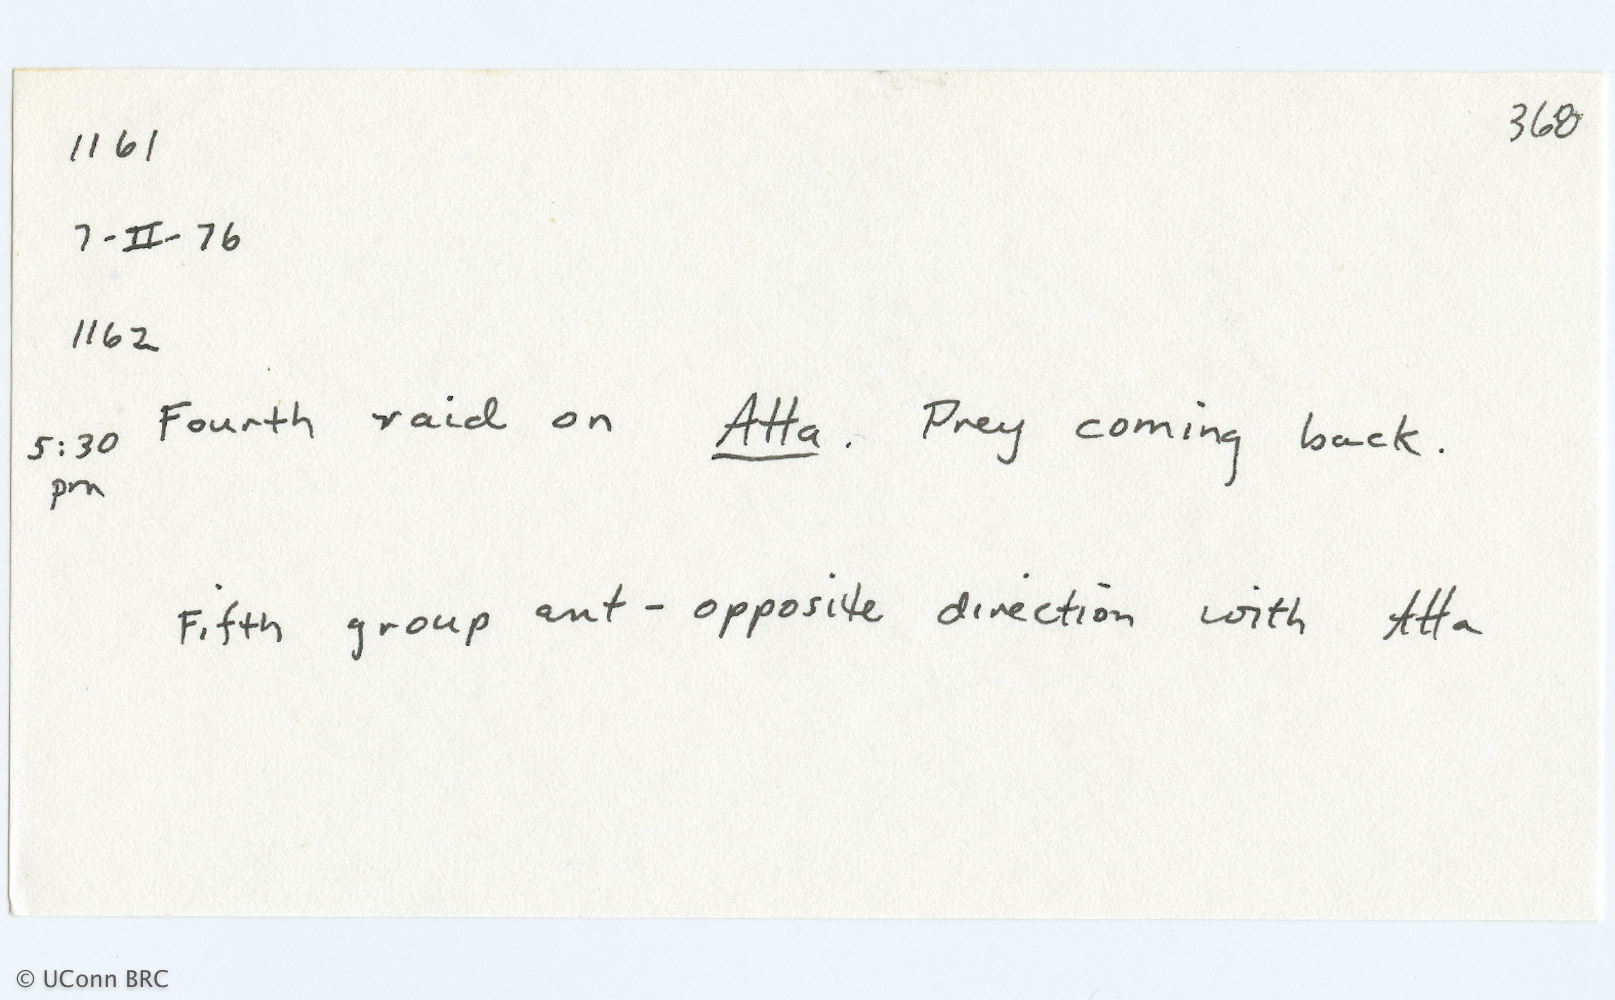 368
1161
7-II-76
1162
Fourth raid on Atta. Prey coming back.
5:30
pm
Fifth group ant - opposite direction with Atta
© UConn BRC